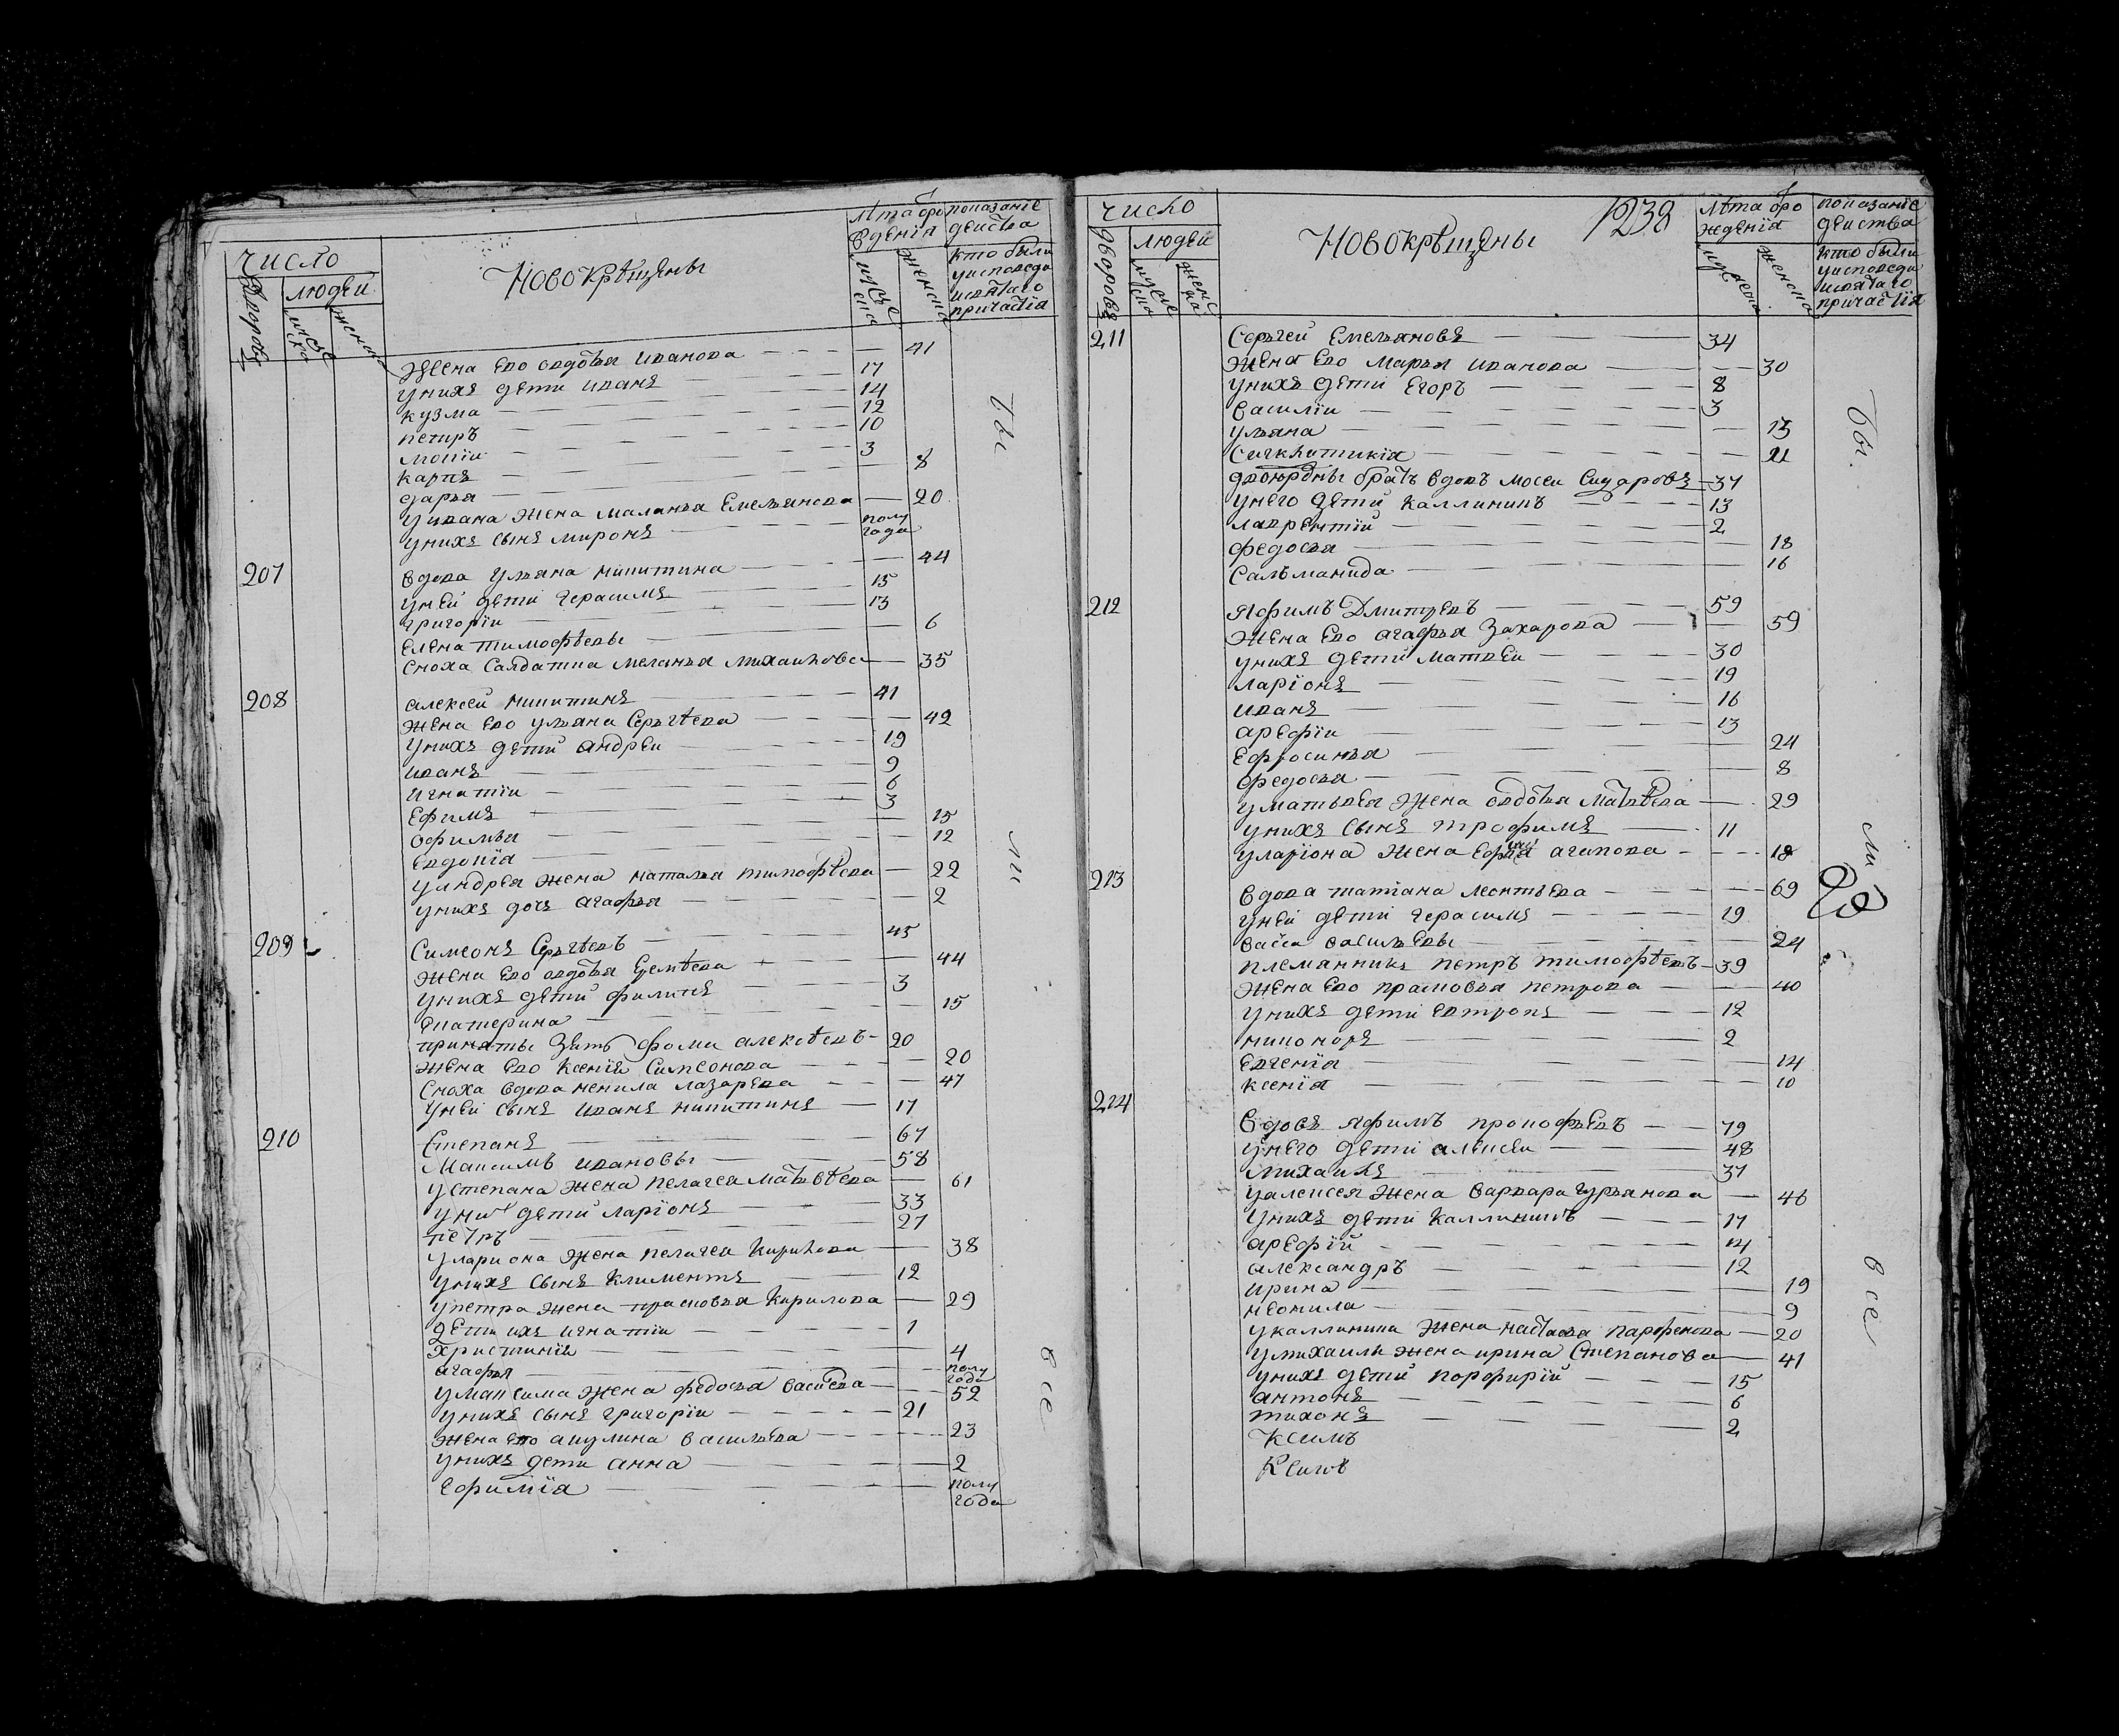 число
людей
дворовъ
мужеска
женска
Новокрѣщены
лѣта оро
жденiя
мужеска
женска
показанiе
действа
кто были
уисповеди
исвятаго
причастiя
жена ево овдотья иванова 41
унихъ дети иванъ 17
кузма 14
петръ 12
10
карпъ 3
дарья 8
уивана жена маланья Емельянова 20
унихъ сынъ миронъ полу года
207 вдова ульяна никитина 44
уней дети герасимъ 15
григорiи 13
Елена тимофѣевы 6
сноха салдатка меланья михаилова 35
208 алексей никитинъ 41
жена ево ульяна Сергѣева 42
унихъ дети андреи 19
иванъ 9
игнатiи 6
Ефимъ 3
офимья 15
Евдокiя 12
уандрея жена наталья тимофѣева 22
унихъ дочь агафья 2
209 Симеонъ Сергѣевъ 45
жена ево овдотья 44
унихъ дети филипъ 3
Екатерина 15
приняты зять фома алексѣевъ 20
жена ево Ксенiя Симеонова 20
Сноха вдова ненила лазарева 47
уней сынъ иванъ никитинъ 17
210 Степанъ 67
Максимъ ивановы 58
устепана жена пелагея матвѣева 61
уних дети ларiонъ 33
петръ 27
улариона жена пелагея Кирилова 38
унихъ сынъ Климентъ 12
упетра жена прасковья Кирилова 29
дети ихъ игнатiи 1
христинiя 4
агафья полу года
умаксима жена федосья васиева 52
унихъ сынъ григорiи 21
жена ево акулина васильева 23
унихъ дети анна 2
Ефимiя полу года
бы
ли
все
число
людей
дворовъ
мужеска
женска
Новокрѣщены
1238
лѣта оро
жденiя
мужеска
женска
показанiе
действа
кто были
уисповеди
исвятаго
причастiя
211 Сергей Емельяновъ 34
жена ево Марья иванова 30
унихъ дети Егоръ 8
василiи 3
ульяна 13
Сигклитикiя 21
двоюрдны братъ вдовъ мосеи Сидаровъ 37
унего дети Каллиникъ 13
лаврентiй 2
федосья 18
Сальманида 16
212 Яфимъ Дмитревъ 59
жена ево агафья Захарова 59
унихъ дети матвеи 30
ларiонъ 19
иванъ 16
арефiи 13
Ефросинья 24
федосья 8
уматвея жена овдотья матвѣева 29
унихъ сынъ трофимъ 11
уларiона жена Ефимiя агапова 18
213 вдова татiана леонтьева 69
уней дети герасимъ 19
васса васильевы 24
племянникъ петръ тимофѣевъ 39
жена ево прасковья петрова 40
унихъ дети Евтропъ 12
никоноръ 2
Евгенiя 14
ксенiя 10
214 вдовъ Яфимъ прокофьевъ 79
унего дети алексеи 48
михаилъ 37
уалексея жена варвара гурьянова 46
унихъ дети Каллиникъ 17
арефiй 14
александръ 12
ирина 19
неонила 9
укаллиника жена настасья парфенова 20
умихаила жена ирина Степанова 41
унихъ дети порфирiй 15
антонъ 6
тихонъ 2
Ксимъ
Ксимъ
бы
ли
все